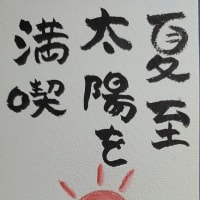 夏至
太陽を
満喫